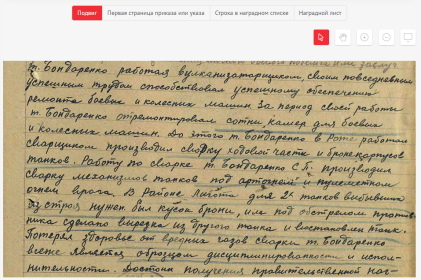 Подвиг Первая страница приказа или указа Строка в наградном списке Наградной лист
т. Бондаренко работая вулканизаторщиком, своим повседневным
успешным трудом способствовал успешному обеспечении
ремонта боевых и колесных машин. За период своей работы
т. Бондаренко отремонтировал сотни камер для боевых
и колесных машин. До этого т. Бондаренко в Роте работал
сварщиком производил сварку ходовой части и бронекорпусов
танков. Работу по сварке т. Бондаренко С.П. производил
сварку механизмов танков под артогнем и пулеметном
огнем врага. В Районе для 2х танков выбывших
из строя нужен был кусок брони, и под обстрелом против
ника сделано вырезка из другого танка и восстановлен танк.
Потеряв здоровье от вредных газов сварки т. Бондаренко
всегда является образцом дисциплинированности и испол-
нительности. Достоин получения правительственной наг-